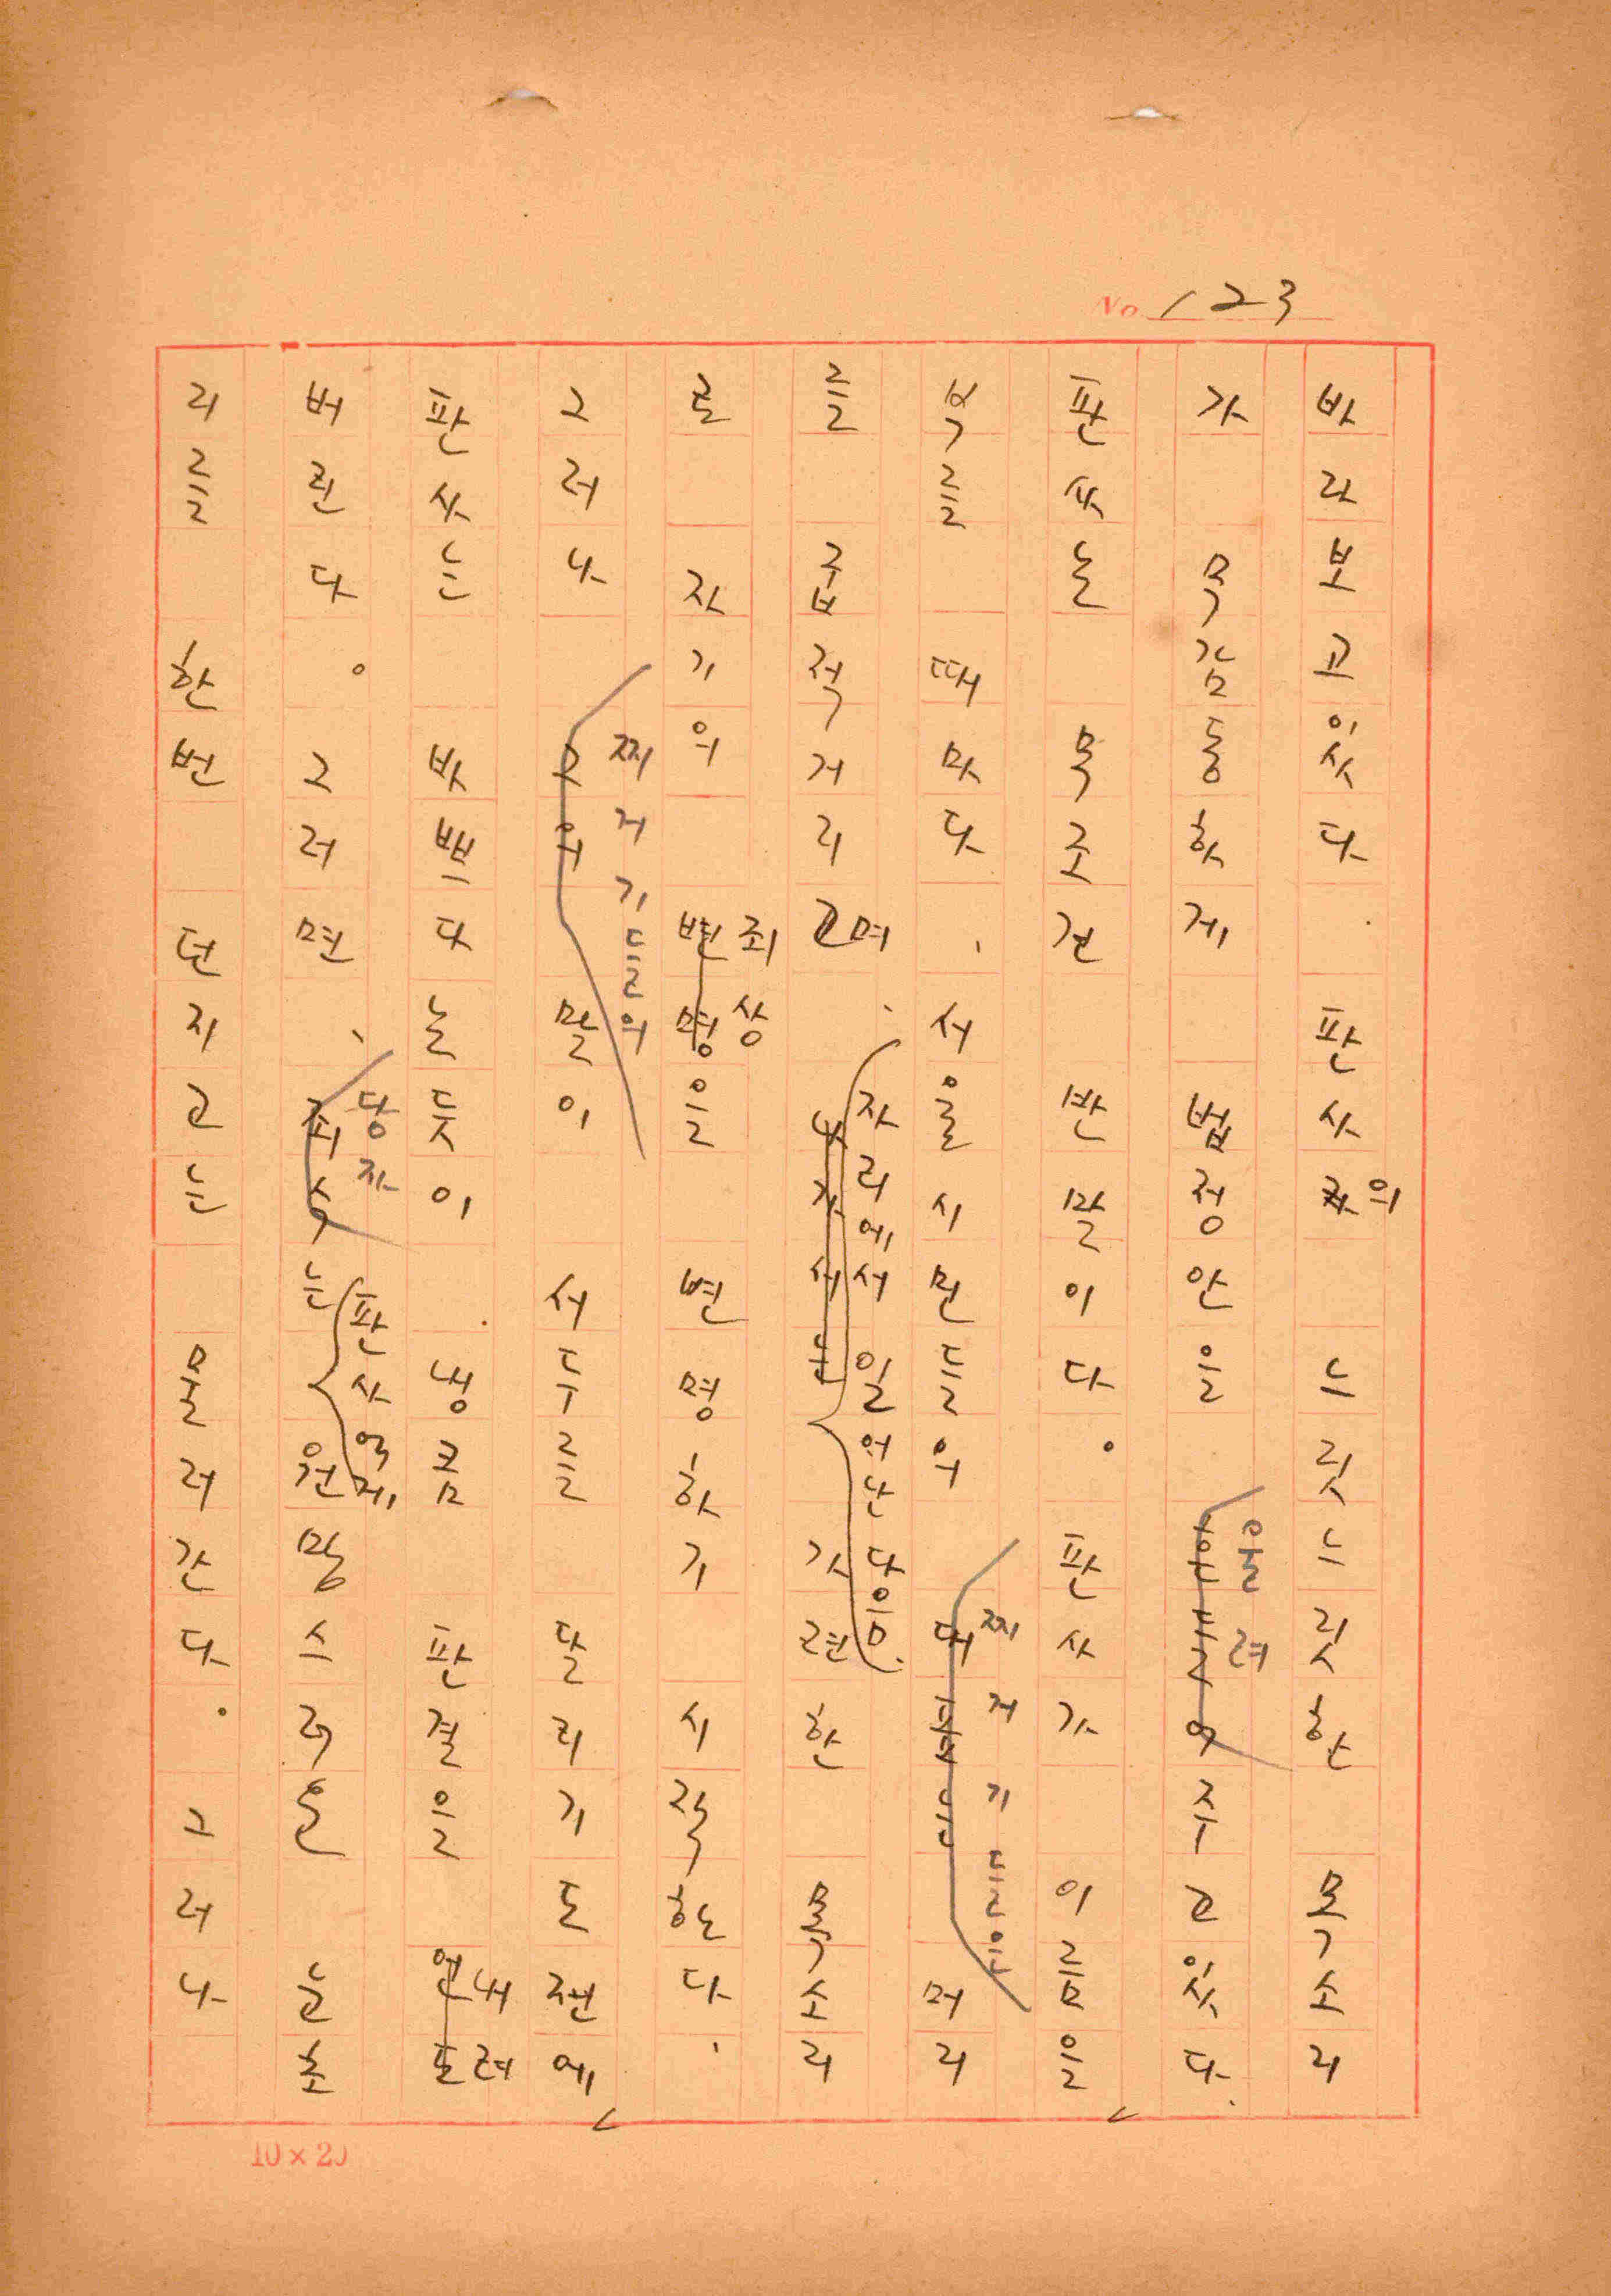 No. 123
바라보고있다. 판사의 느릿느릿한 목소리
가 무감동하게 법정안을 울려주고있다.
판사는 무조건 반말이다. 판사가 이름을
부를 때마다, 서울시민들의 찌거기들은 머리
를 굽적거리며, 자리에서 일어난다음. 가련한 목소리
로 자기의 죄상을 변명하기 시작한다.
그러나 찌거기들의 말이 서두를 달리기도전에
판사는 바쁘다는듯이. 냉큼 판결을 내려
버린다. 그러면, 당자는 판사에게 원망스러운 눈초
리를 한번 던지고는 물러간다. 그러나
10×20